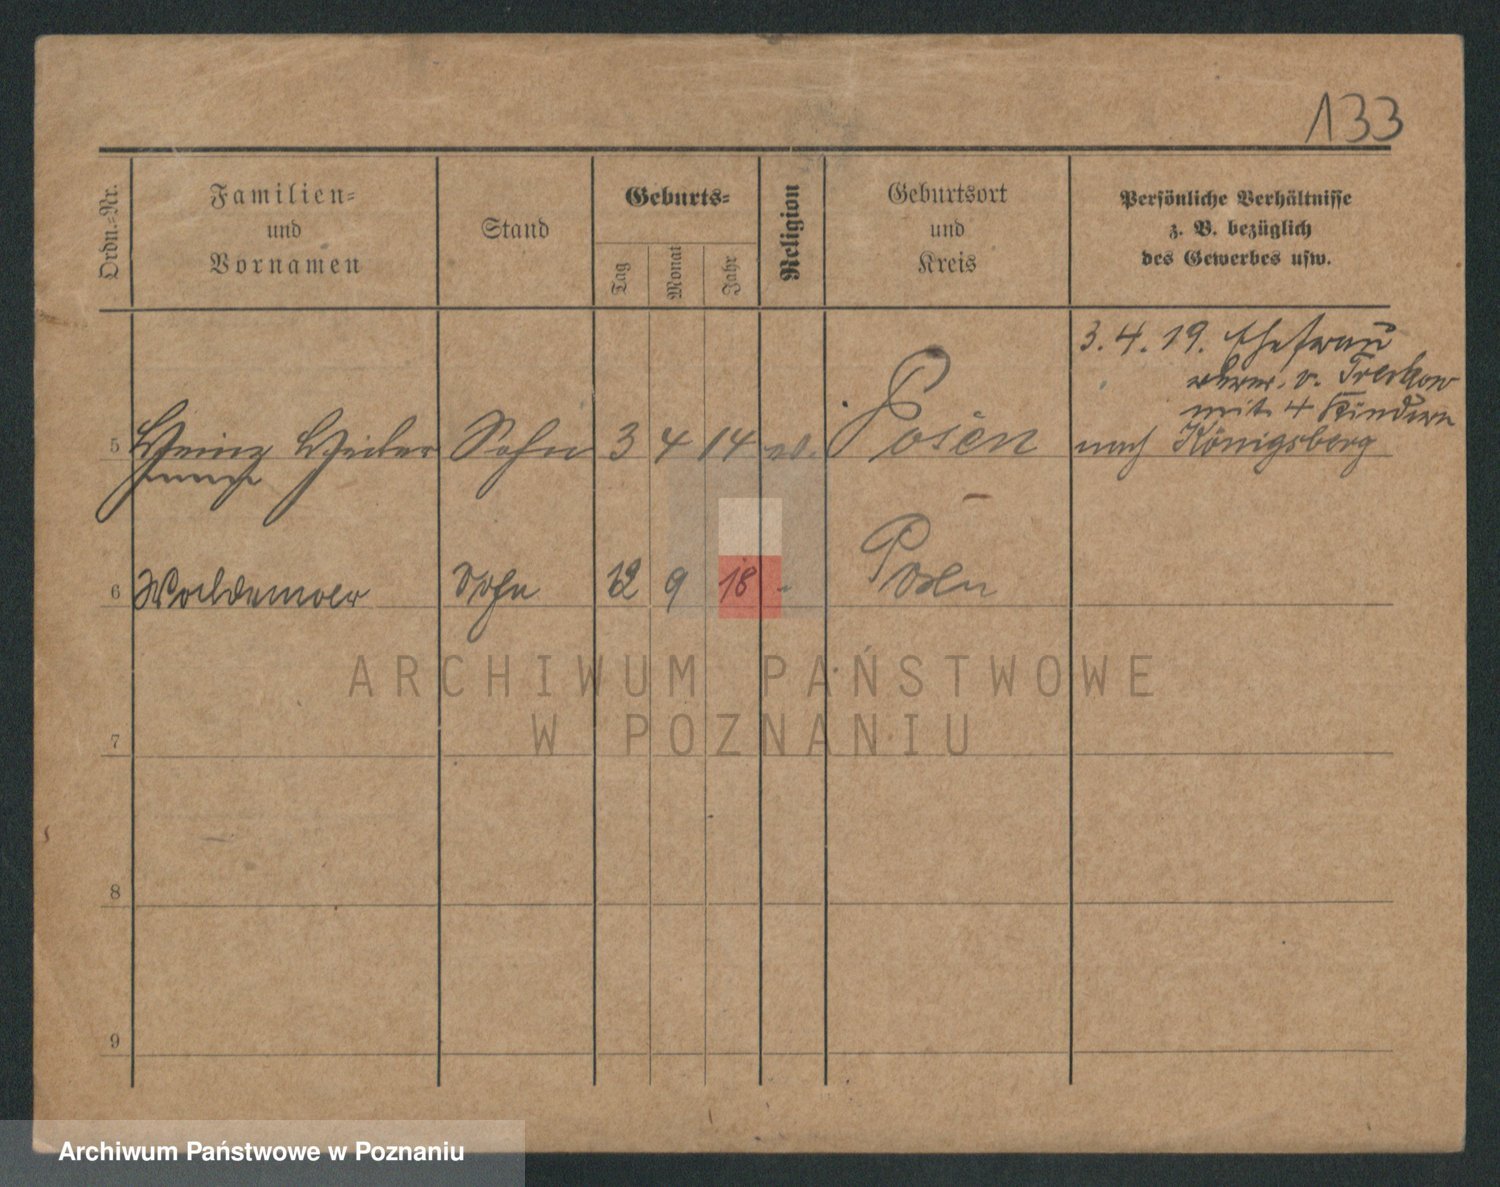 133
Ordn.-Nr.
Familien-
und
Vornamen
Stand
Geburts-
Tag
Monat
Jahr
Religion
Geburtsort
und
Kreis
Persönliche Verhältnisse
z. B. bezüglich
des Gewerbes usw.
3. 4. 19. Ehefrau
v. Treskow
mit 4 Kindern
nach Königsberg
5 Heinz Sohn 3 4 14 ev. Posen
6 Woldemar Sohn 12 9 18 - Posen
7
8
9
ARCHIWUM PAŃSTWOWE
W POZNANIU
Archiwum Państwowe w Poznaniu